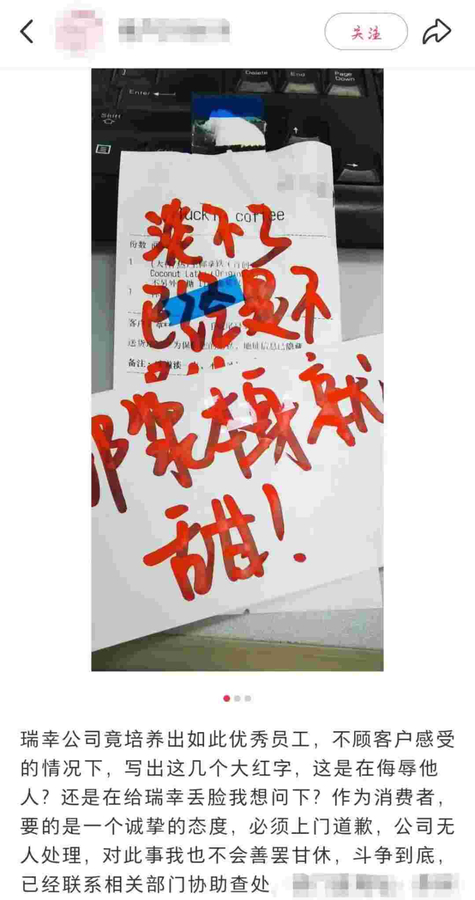 关注
Delete
End
Page Down
Enter
Shift
luckin coffee
份数
1
Coconut Latte
客户
备注
淡不了
已经是不
椰浆本身就
甜！
瑞幸公司竟培养出如此优秀员工，不顾客户感受
的情况下，写出这几个大红字，这是在侮辱他
人？还是在给瑞幸丢脸我想问下？作为消费者，
要的是一个诚挚的态度，必须上门道歉，公司无
人处理，对此事我也不会善罢甘休，斗争到底，
已经联系相关部门协助查处